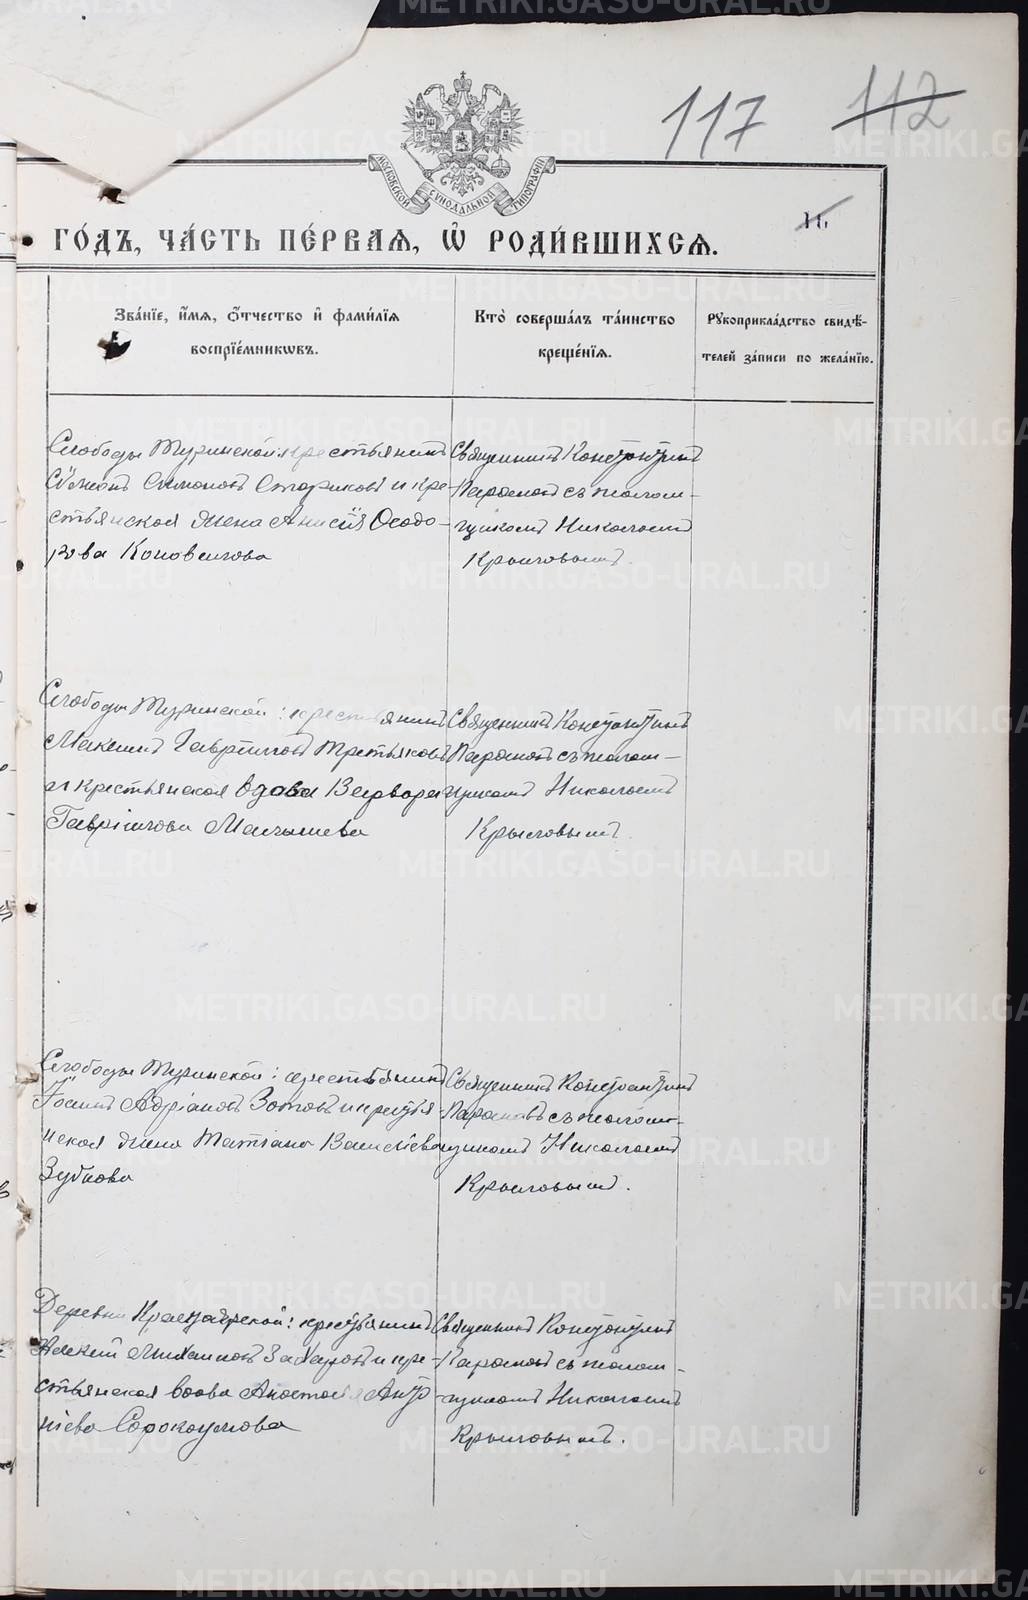 117 112
МОСКОВСКОЙ СѴНОДАЛЬНОЙ ТИПОГРАФІИ
16
ГО́ДЪ, ЧА́СТЬ ПЕ́РВАЯ, Ѽ РОДИ́ВШИХСЯ.
Зва́нїе, и҆́мя, ѻ҆́тчество и҆ фами́лїя
воспрїе́мникѡвъ.
Кто̀ соверша́лъ та́инство
креще́нїя.
Рꙋкоприкла́дство свидѣ́-
телей за́писи по жела́нїю.
Слободы Туринской: крестьянинъ
Симонъ Старковъ и кре-
стьянская жена Анисія Ѳеодо-
рова Коновалова
Священникъ Константинъ
съ псалом-
щикомъ Николаемъ
Крыловымъ.
Слободы Туринской: крестьянинъ
Максимъ Гавріиловъ Третьяковъ
и крестьянская вдова Варвара
Гавріилова Малышева
Священникъ Константинъ
съ псалом-
щикомъ Николаемъ
Крыловымъ.
Слободы Туринской: крестьянинъ
Іоаннъ Адріановъ Зотовъ и крестья-
нская жена Татіана Василіева
Зубкова
Священникъ Константинъ
съ псалом-
щикомъ Николаемъ
Крыловымъ.
Деревни крестьянинъ
Захаровъ и кре-
стьянская вдова
Сорокоумова
Священникъ Константинъ
съ псалом-
щикомъ Николаемъ
Крыловымъ.
METRIKI.GASO-URAL.RU